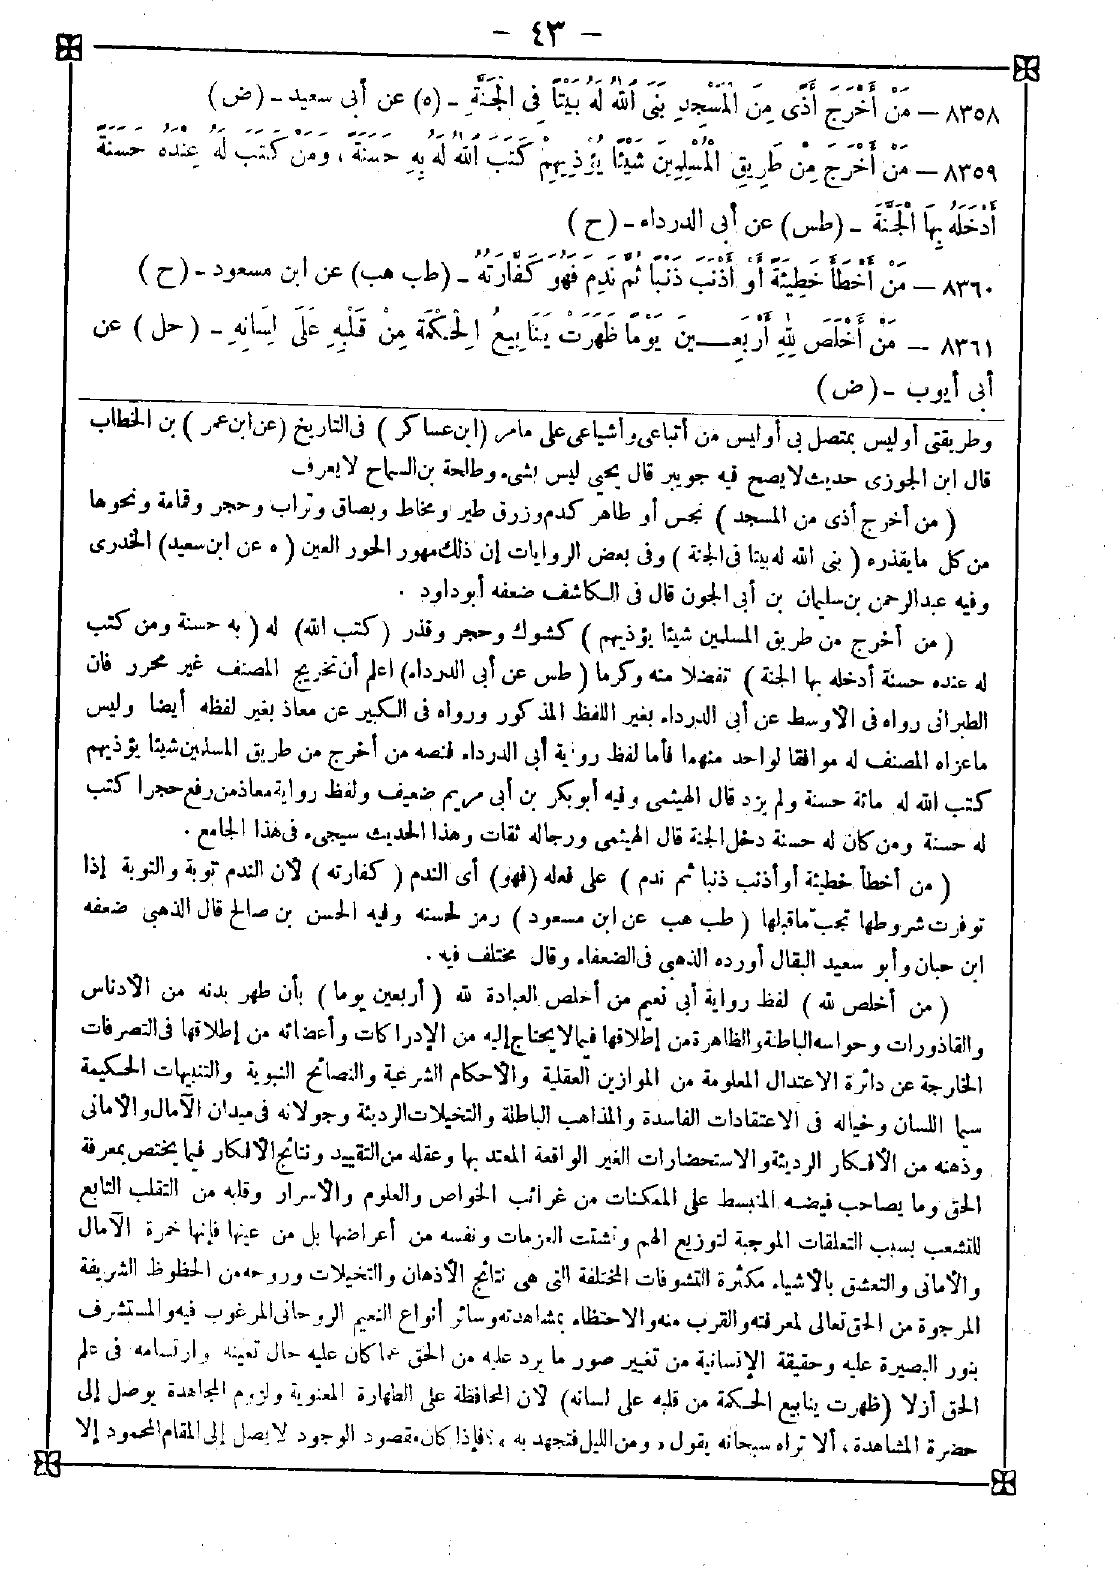 - ٤٣ -
٨٣٥٨ — مَنْ أَخْرَجَ أَذًى مِنَ الْمَسْجِدِ بَنَى اللهُ لَهُ بَيْتًا فِى الْجَنَّةِ - (ه) عن أبى سعيد - (ض)
٨٣٥٩ — مَنْ أَخْرَجَ مِنْ طَرِيقِ الْمُسْلِمِينَ شَيْئًا يُؤْذِيهِمْ كَتَبَ اللهُ لَهُ بِهِ حَسَنَةً ، وَمَنْ كَتَبَ لَهُ عِنْدَهُ حَسَنَةً
أَدْخَلَهُ بِهَا الْجَنَّةَ - (طس) عن أبى الدرداء - (ح)
٨٣٦٠ — مَنْ أَخْطَأَ خَطِيئَةً أَوْ أَذْنَبَ ذَنْبًا ثُمَّ نَدِمَ فَهُوَ كَفَّارَتُهُ - (طب هب) عن ابن مسعود - (ح)
٨٣٦١ — مَنْ أَخْلَصَ لِلهِ أَرْبَعِينَ يَوْمًا ظَهَرَتْ يَنَابِيعُ الْحِكْمَةِ مِنْ قَلْبِهِ عَلَى لِسَانِهِ - (حل) عن
أبى أيوب - (ض)
وطريقتى أو ليس بمتصل بى أو ليس من أتباعى وأشياعى على مامر (ابن عساكر) فى التاريخ (عن ابن عمر) بن الخطاب
قال ابن الجوزى حديث لا يصح فيه جويبر قال يحيى ليس بشىء وطالحة بن السماح لا يعرف
(من أخرج أذى من المسجد) نجس أو طاهر كدم وزرق طير ومخاط وبصاق وتراب وحجر وقمامة ونحوها
من كل ما يقذره (بنى الله له بيتا فى الجنة) وفى بعض الروايات إن ذلك مهور الحور العين (ه عن ابن سعيد) الخدرى
وفيه عبد الرحمن بن سليمان بن أبى الجون قال فى الكاشف ضعفه أبو داود .
(من أخرج من طريق المسلمين شيئا يؤذيهم) كشوك وحجر وقذر (كتب الله) له (به حسنة ومن كتب
له عنده حسنة أدخله بها الجنة) تفضلا منه وكرما (طس عن أبى الدرداء) اعلم أن تخريج المصنف غير محرر فان
الطبرانى رواه فى الأوسط عن أبى الدرداء بغير اللفظ المذكور ورواه فى الكبير عن معاذ بغير لفظه أيضا وليس
ما عزاه المصنف له موافقا لواحد منهما فأما لفظ رواية أبى الدرداء فنصه من أخرج من طريق المسلمين شيئا يؤذيهم
كتب الله له مائة حسنة ولم يزد قال الهيثمى وفيه أبو بكر بن أبى مريم ضعيف ولفظ رواية معاذ من رفع حجرا كتب
له حسنة ومن كان له حسنة دخل الجنة قال الهيثمى ورجاله ثقات وهذا الحديث سيجىء فى هذا الجامع .
(من أخطأ خطيئة أو أذنب ذنبا ثم ندم) على فعله (فهو) أى الندم (كفارته) لأن الندم توبة والتوبة إذا
توفرت شروطها تجب ما قبلها (طب هب عن ابن مسعود) رمز لحسنه وفيه الحسن بن صالح قال الذهبى ضعفه
ابن حبان وأبو سعيد البقال أورده الذهبى فى الضعفاء وقال مختلف فيه .
(من أخلص لله) لفظ رواية أبى نعيم من أخلص العبادة لله (أربعين يوما) بأن طهر بدنه من الأدناس
والقاذورات وحواسه الباطنة والظاهرة من إطلاقها فيما لا يحتاج إليه من الإدراكات وأعضائه من إطلاقها فى التصرفات
الخارجة عن دائرة الاعتدال المعلومة من الموازين العقلية والأحكام الشرعية والنصائح النبوية والتنبيهات الحكيمة
سيما اللسان وخياله فى الاعتقادات الفاسدة والمذاهب الباطلة والتخيلات الرديئة وجولانه فى ميدان الآمال والأمانى
وذهنه من الأفكار الرديئة والاستحضارات الغير الواقعة المعتد بها وعقله من التقييد ونتائج الأفكار فيما يختص بمعرفة
الحق وما يصاحب فيضه المنبسط على الممكنات من غرائب الخواص والعلوم والأسرار وقلبه من التقلب التابع
للتشعب بسبب التعلقات الموجبة لتوزيع الهم وتشتت العزمات ونفسه من أعراضها بل من عينها فإنها خمرة الآمال
والأمانى والتعشق بالأشياء مكثرة التشوفات المختلفة التى هى نتائج الأذهان والتخيلات وروحه من الحظوظ الشريفة
المرجوة من الحق تعالى لمعرفته والقرب منه والاحتظاء بمشاهدته وسائر أنواع النعيم الروحانى المرغوب فيه والمستشرف
بنور البصيرة عليه وحقيقة الإنسانية من تغيير صور ما يرد عليه من الحق عما كان عليه حال تعينه وارتسامه فى علم
الحق أزلا (ظهرت ينابيع الحكمة من قلبه على لسانه) لأن المحافظة على الطهارة المعنوية ولزوم المجاهدة يوصل إلى
حضرة المشاهدة ، ألا تراه سبحانه يقول « ومن الليل فتهجد به » ؟ فإذا كان مقصود الوجود لا يصل إلى المقام المحمود إلا